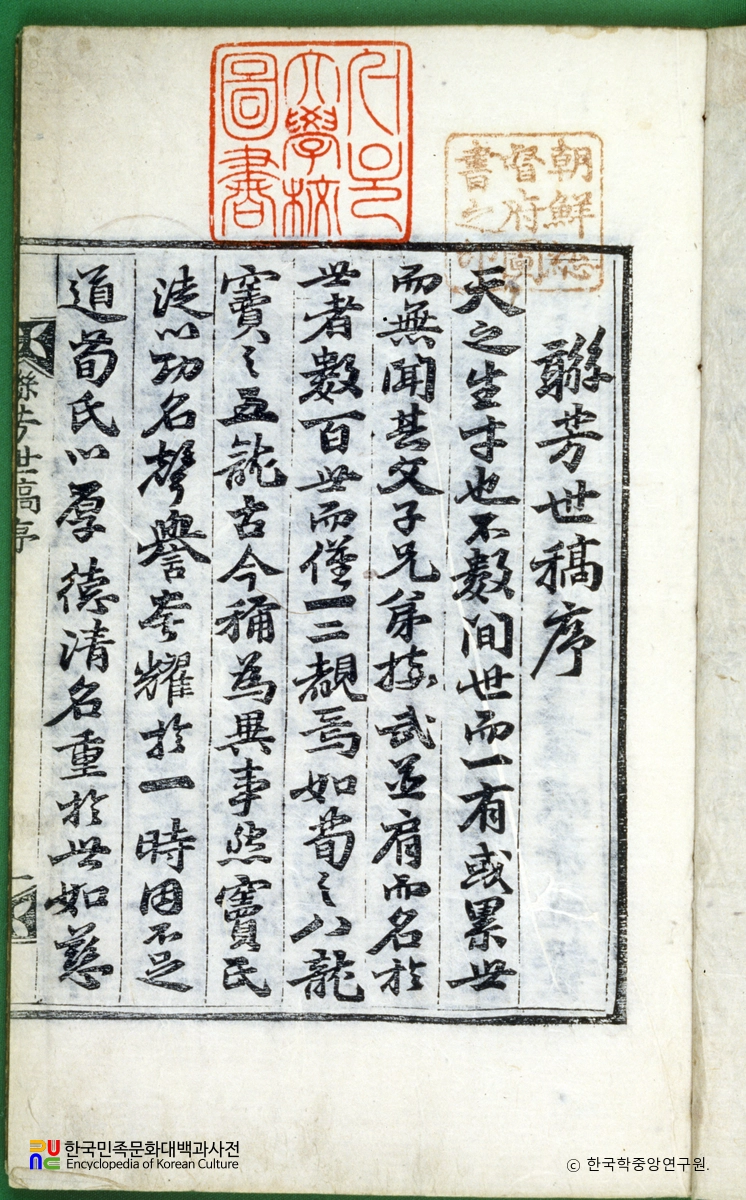 聯芳世稿序
天之生才也不數間世而一有或累世
而無聞其父子兄弟接武並肩而名於
世者數百世而僅一二覩焉如荀之八龍
竇之五龍古今稱爲異事然竇氏
徒以功名聲譽榮耀於一時固不足
道荀氏以厚德清名重於世如慈
聯芳世稿序
大學校
圖書
朝鮮總
督府圖
書之印
한국민족문화대백과사전
Encyclopedia of Korean Culture
© 한국학중앙연구원.